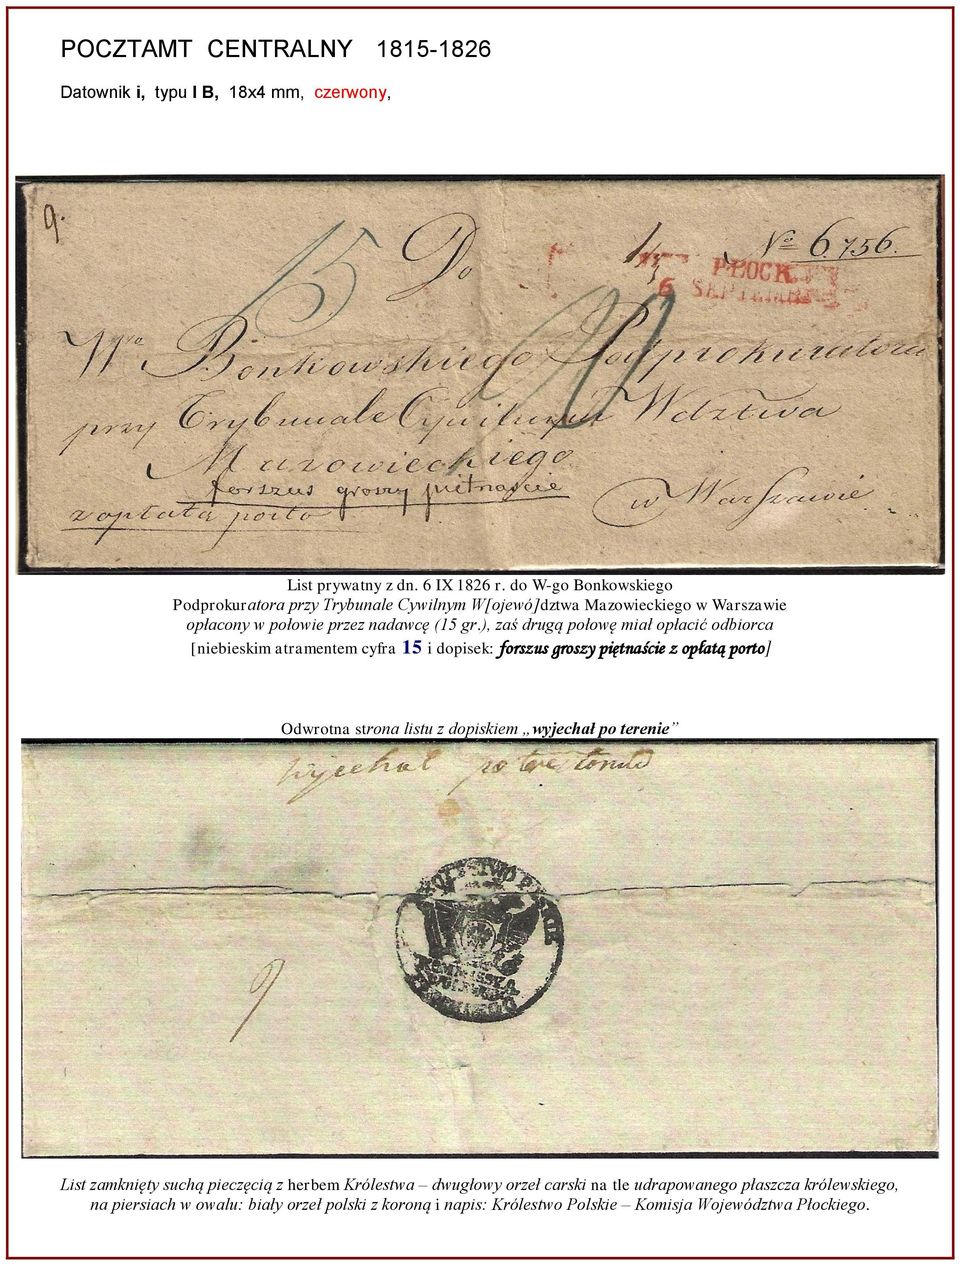 POCZTAMT CENTRALNY 1815-1826
Datownik i, typu I B, 18x4 mm, czerwony,
9.
15
Do
Nº 6.756.
PŁOCK
6 SEPTEMBR
Wgo Bonkowskiego Podprokuratora
przy Trybunale Cywilnym Wdztwa
Mazowieckiego
forszus groszy piętnaście
w Warszawie
z opłatą porto
List prywatny z dn. 6 IX 1826 r. do W-go Bonkowskiego
Podprokuratora przy Trybunale Cywilnym W[ojewó]dztwa Mazowieckiego w Warszawie
opłacony w połowie przez nadawcę (15 gr.), zaś drugą połowę miał opłacić odbiorca
[niebieskim atramentem cyfra 15 i dopisek: forszus groszy piętnaście z opłatą porto]
Odwrotna strona listu z dopiskiem „wyjechał po terenie”
wyjechał po
KRÓLESTWO POLSKIE
KOMMISSYA
List zamknięty suchą pieczęcią z herbem Królestwa – dwugłowy orzeł carski na tle udrapowanego płaszcza królewskiego,
na piersiach w owalu: biały orzeł polski z koroną i napis: Królestwo Polskie – Komisja Województwa Płockiego.